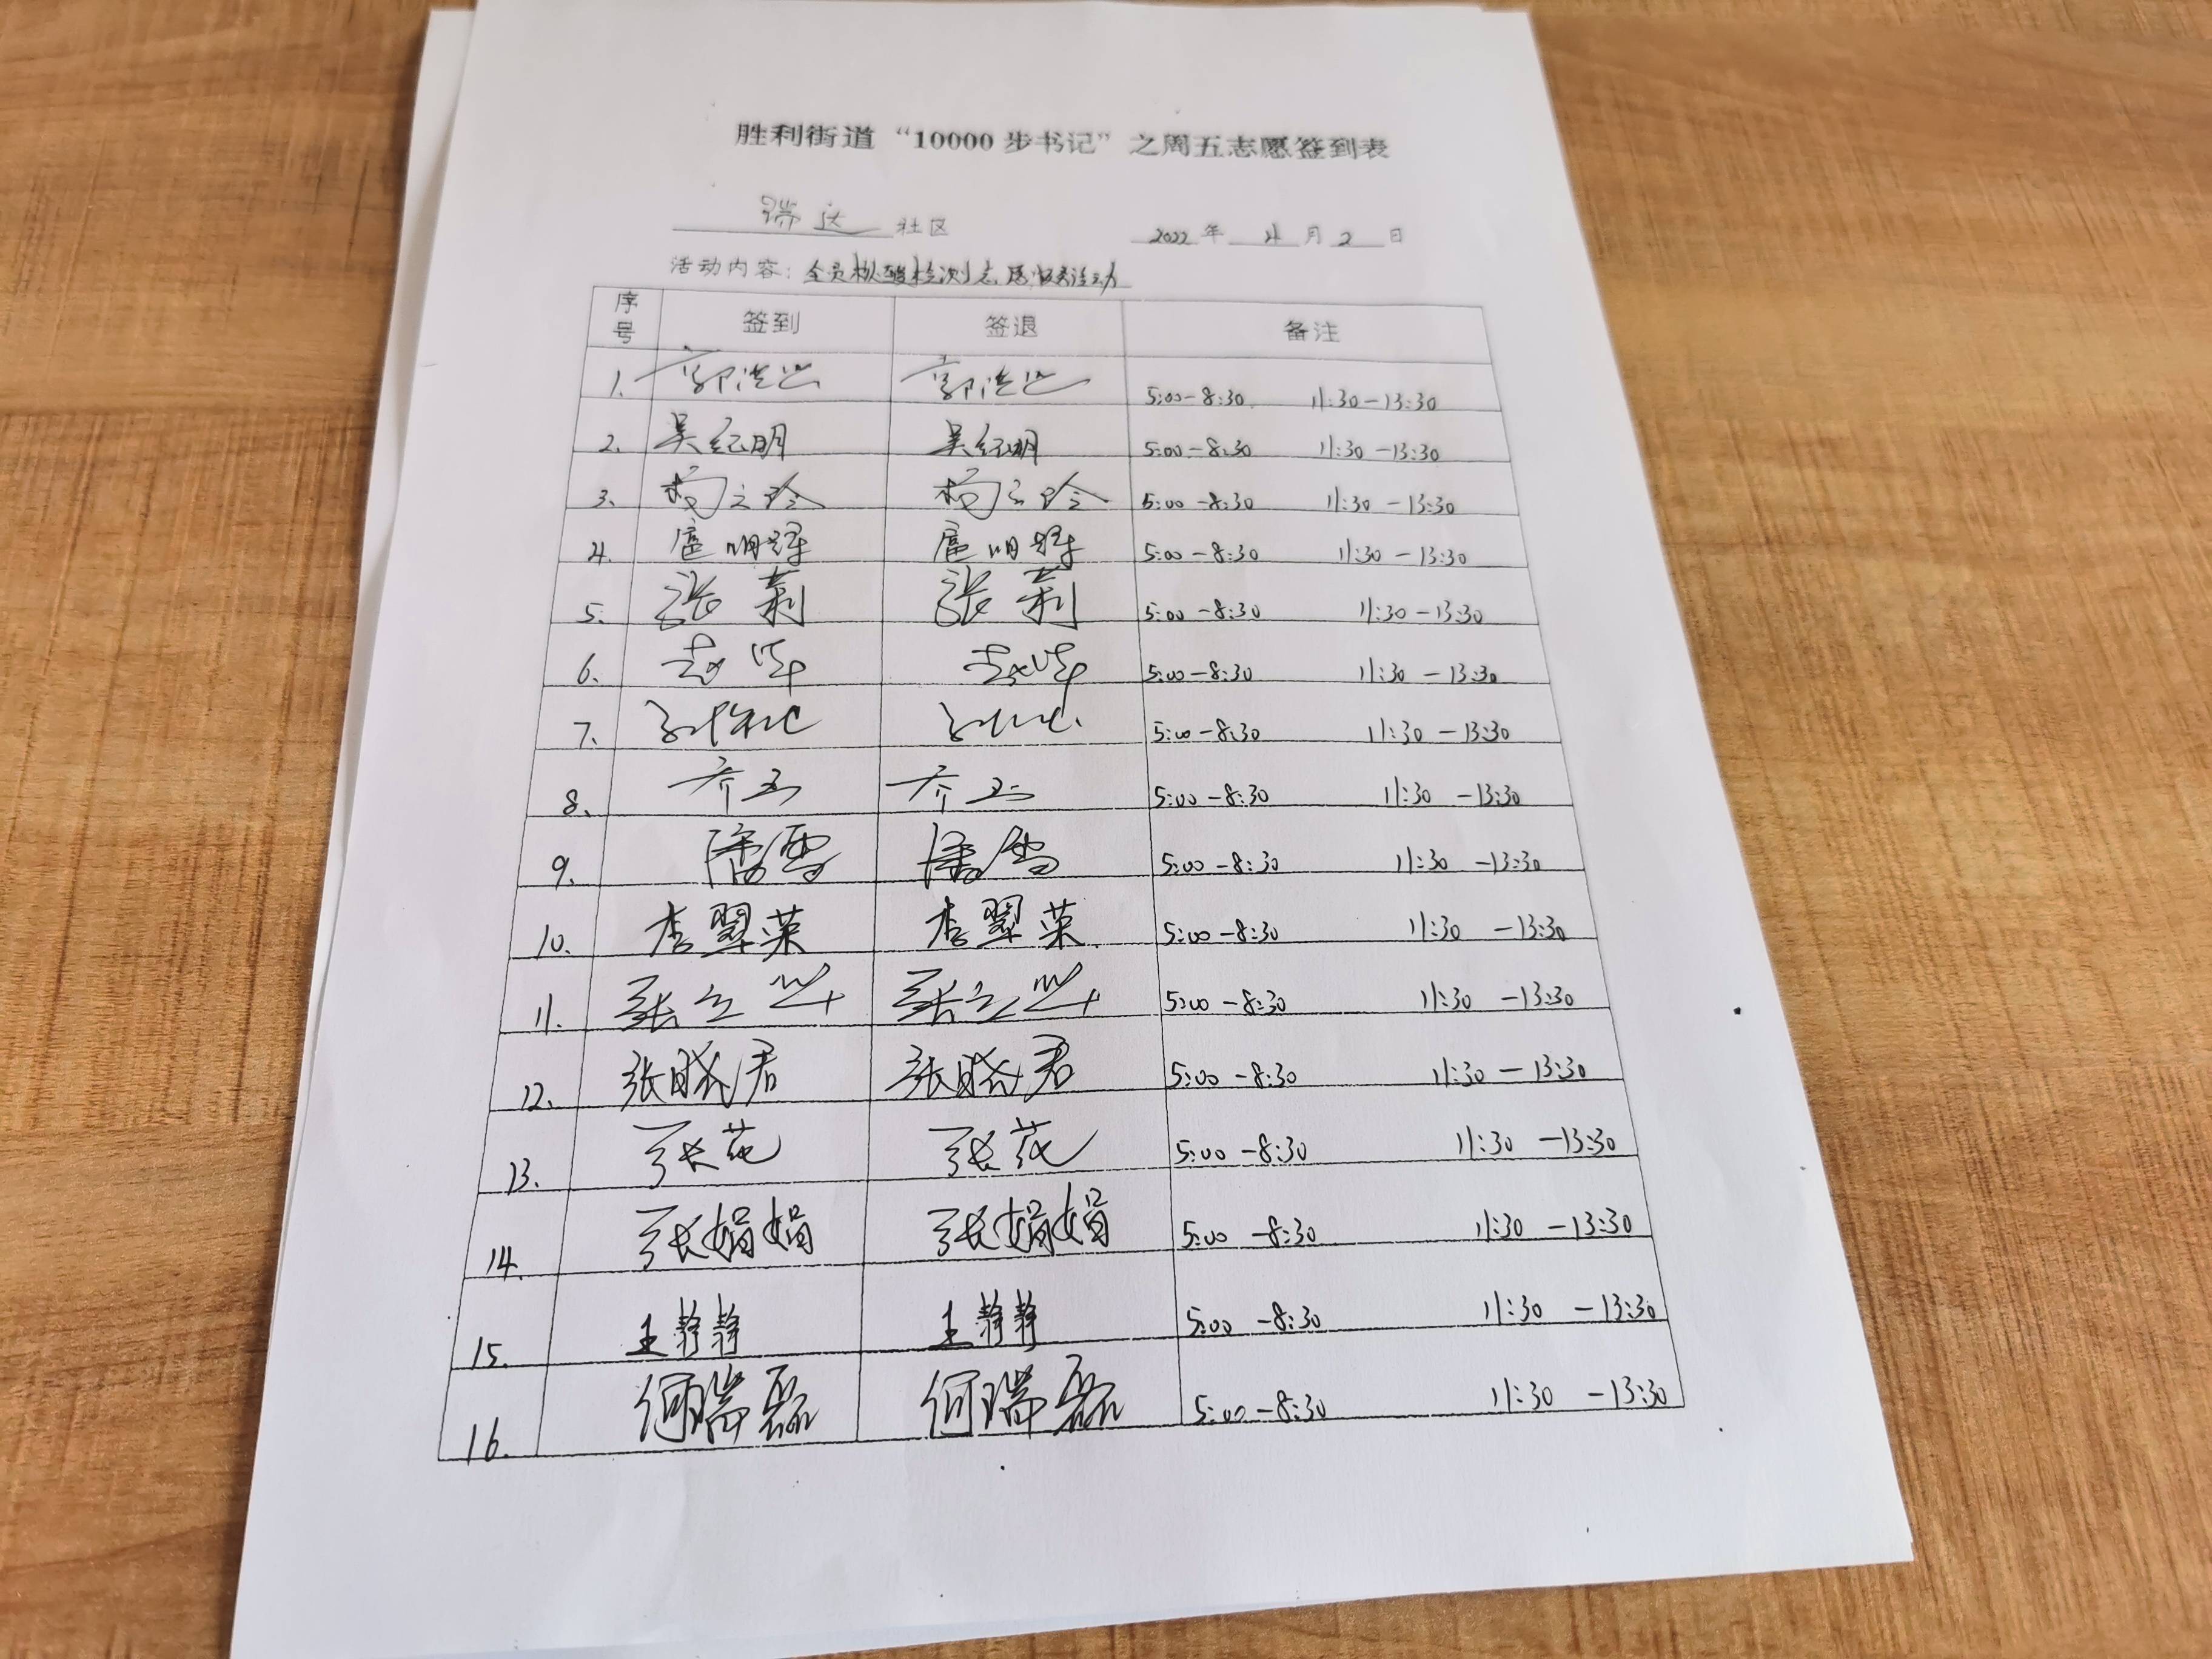 胜利街道“10000步书记”之周五志愿签到表
瑞达 社区 2022 年 4 月 2 日
活动内容：全员核酸检测志愿服务活动
序号 签到 签退 备注
1. 5:00-8:30 11:30-13:30
2. 吴纪明 吴纪明 5:00-8:30 11:30-13:30
3. 杨玲 杨玲 5:00-8:30 11:30-13:30
4. 扈明辉 扈明辉 5:00-8:30 11:30-13:30
5. 张莉 张莉 5:00-8:30 11:30-13:30
6. 赵 赵 5:00-8:30 11:30-13:30
7. 5:00-8:30 11:30-13:30
8. 齐 齐 5:00-8:30 11:30-13:30
9. 潘雪 潘雪 5:00-8:30 11:30-13:30
10. 李翠荣 李翠荣 5:00-8:30 11:30-13:30
11. 张立 张立 5:00-8:30 11:30-13:30
12. 张晓君 张晓君 5:00-8:30 11:30-13:30
13. 张花 张花 5:00-8:30 11:30-13:30
14. 张娟娟 张娟娟 5:00-8:30 11:30-13:30
15. 王静静 王静静 5:00-8:30 11:30-13:30
16. 何瑞磊 何瑞磊 5:00-8:30 11:30-13:30